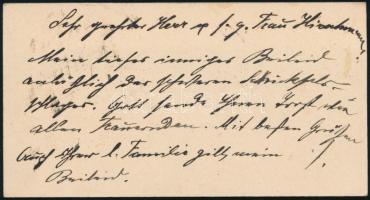 Sehr geehrter Herr u. s. g. Frau
Mein tiefes inniges Beileid
anläßlich des schweren Schicksals-
schlages. Gott sende Ihnen Trost u.
allen Trauernden. Mit besten Grüßen
Auch Ihrer l. Familie gilt mein
Beileid.